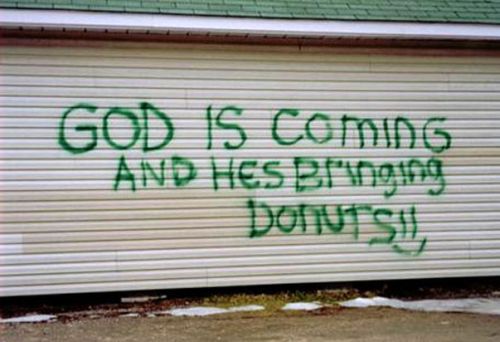 GOD IS COMING
AND HES BrINgINg
DONUTS!!